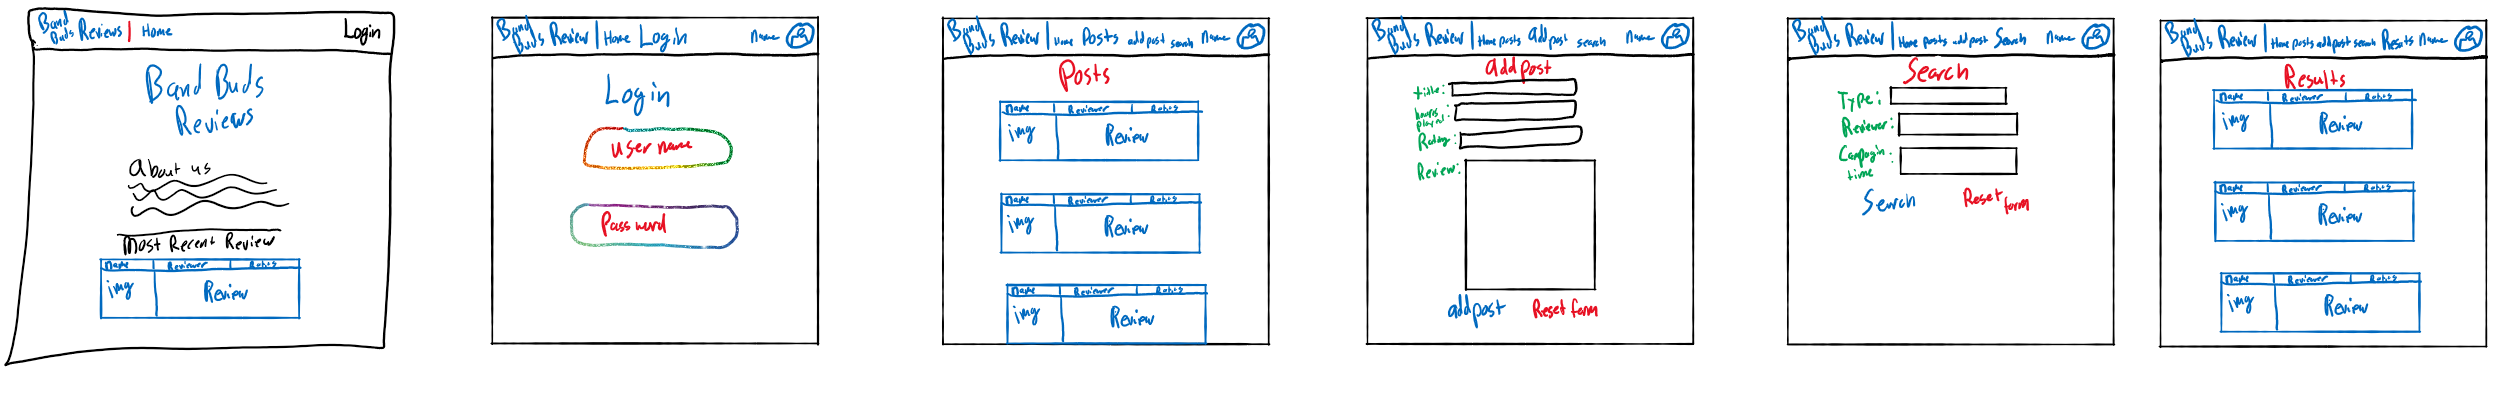 Band Buds Reviews | Home Login
Band Buds
Reviews
About us
Most Recent Review
Name Reviewer
img Review
Band Buds Review | Home Login Name
Login
username
Password
Band Buds Review | Home Posts add post search Name
Posts
Name Reviewer
img Review
Name Reviewer
img Review
Name Reviewer
img Review
Band Buds Review | Home posts add post search Name
add post
title:
hours played:
Rating:
Review:
add post Reset form
Band Buds Review | Home posts add post Search Name
Search
Type:
Reviewer:
Campagin time :
Search Reset form
Band Buds Review | Home posts add post search Results Name
Results
Name Reviewer
img Review
Name Reviewer
img Review
Name Reviewer
img Review